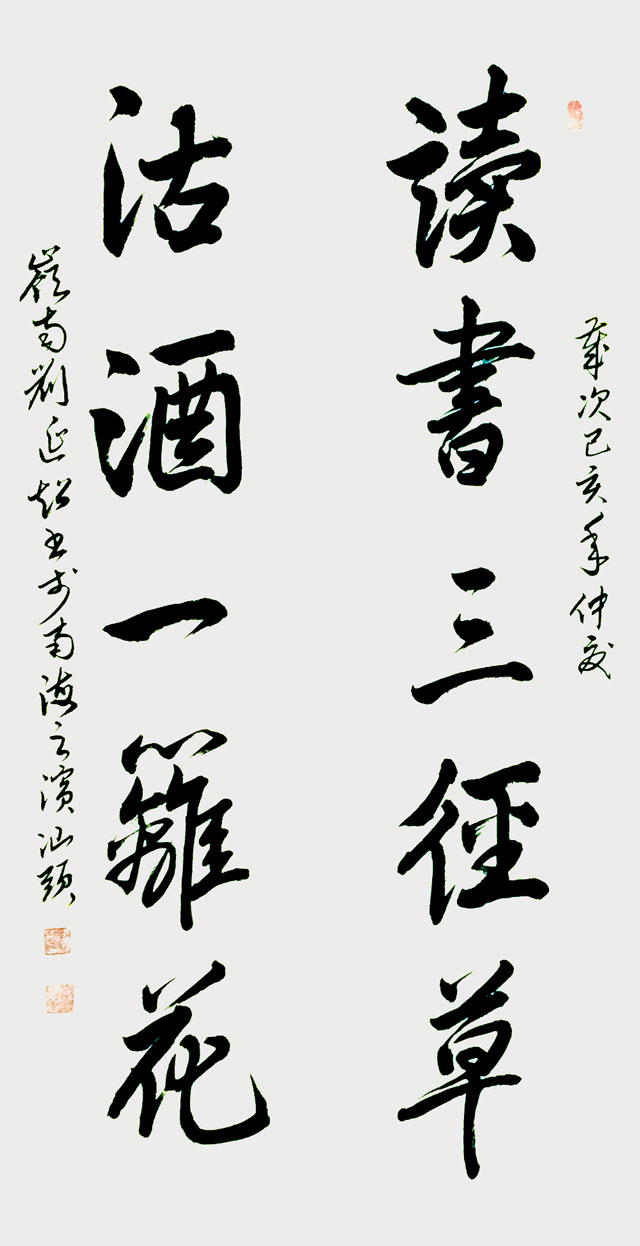 歲次己亥年仲夏
讀書三徑草
沽酒一籬花
嶺南劉延超书於南海之濱汕頭